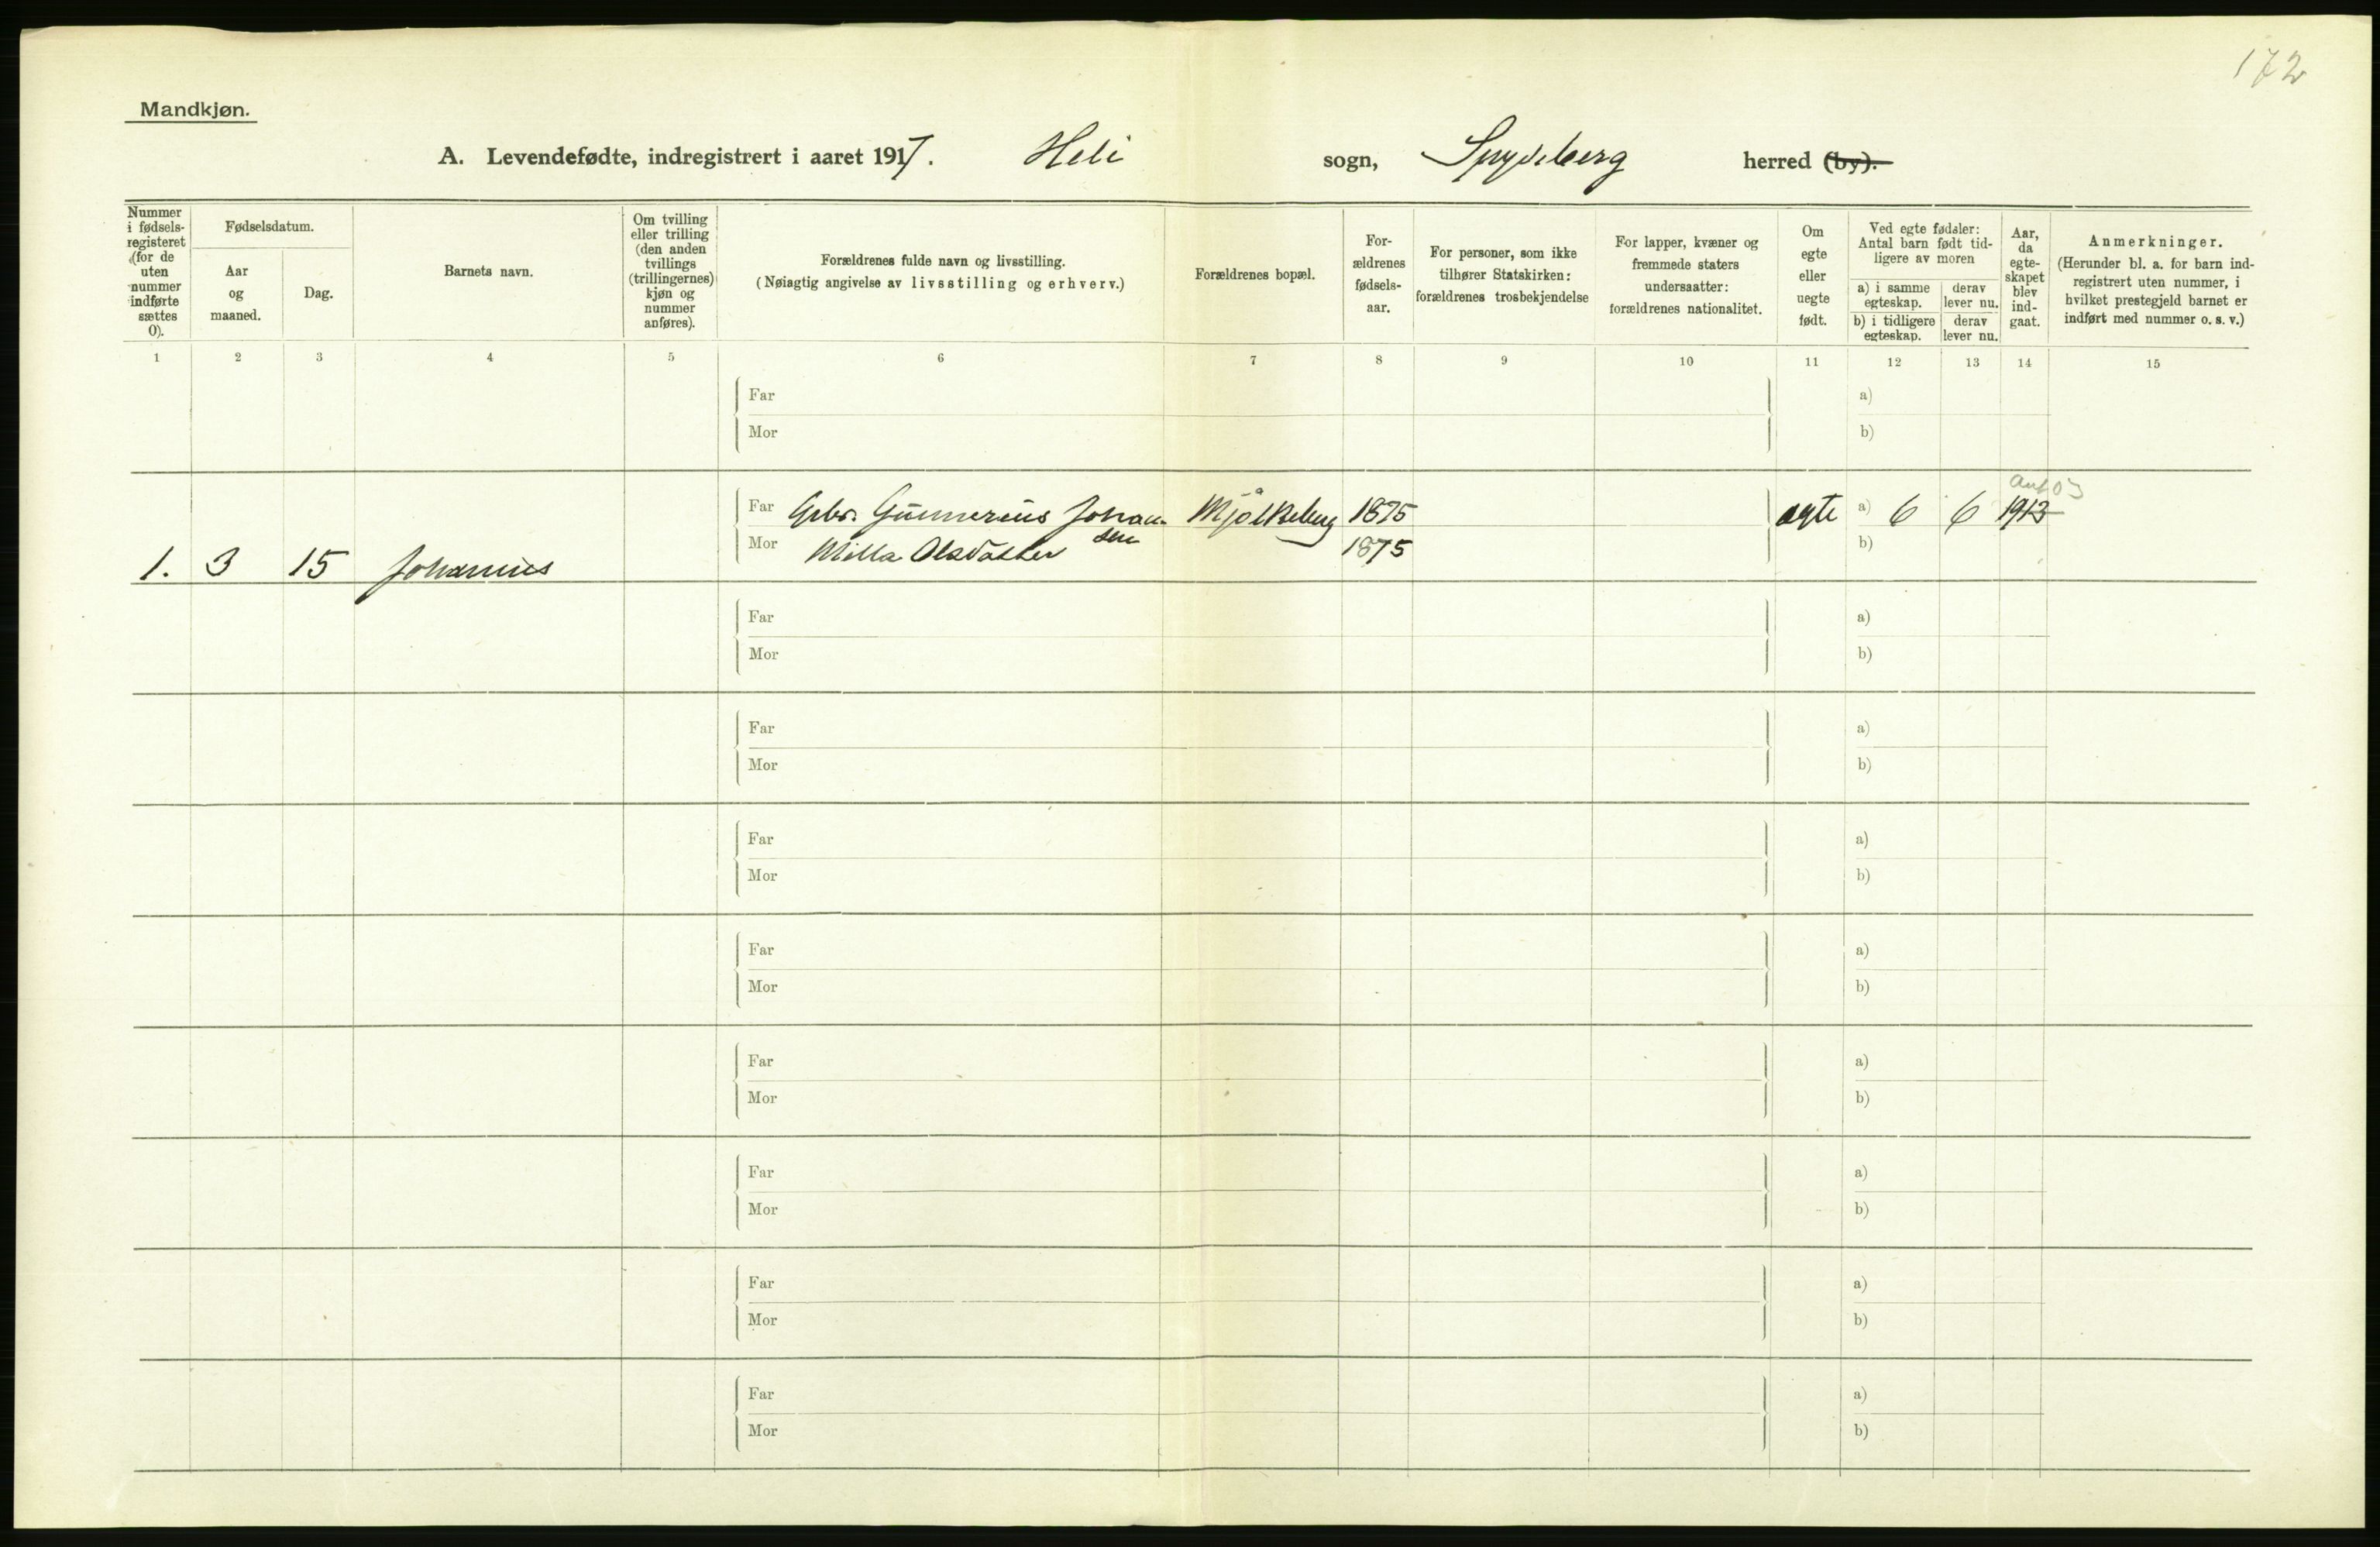 172
Mandkjøn.
A. Levendefødte, indregistrert i aaret 1917. Heli sogn, Spydeberg herred (by).
Nummer i fødsels-registeret (for de uten nummer indførte sættes 0).
Fødselsdatum.
Aar og maaned.
Dag.
Barnets navn.
Om tvilling eller trilling (den anden tvillings (trillingernes) kjøn og nummer anføres).
Forældrenes fulde navn og livsstilling.
(Nøiagtig angivelse av livsstilling og erhverv.)
Forældrenes bopæl.
For-ældrenes fødsels-aar.
For personer, som ikke tilhører Statskirken: forældrenes trosbekjendelse
For lapper, kvæner og fremmede staters undersaatter: forældrenes nationalitet.
Om egte eller uegte født.
Ved egte fødsler: Antal barn født tid-ligere av moren
a) i samme egteskap. derav lever nu.
b) i tidligere egteskap. derav lever nu.
Aar, da egte-skapet blev ind-gaat.
Anmerkninger.
(Herunder bl. a. for barn ind-registrert uten nummer, i hvilket prestegjeld barnet er indført med nummer o. s. v.)
1 2 3 4 5 6 7 8 9 10 11 12 13 14 15
Far a)
Mor b)
Far Gbr. Gunnerius Johan- Mjølkeberg 1875 egte a) 6 6 1913
sen
Mor Milla Olsdatter 1875 b)
1. 3 15 Johannes
Far a)
Mor b)
Far a)
Mor b)
Far a)
Mor b)
Far a)
Mor b)
Far a)
Mor b)
Far a)
Mor b)
Far a)
Mor b)
Far a)
Mor b)